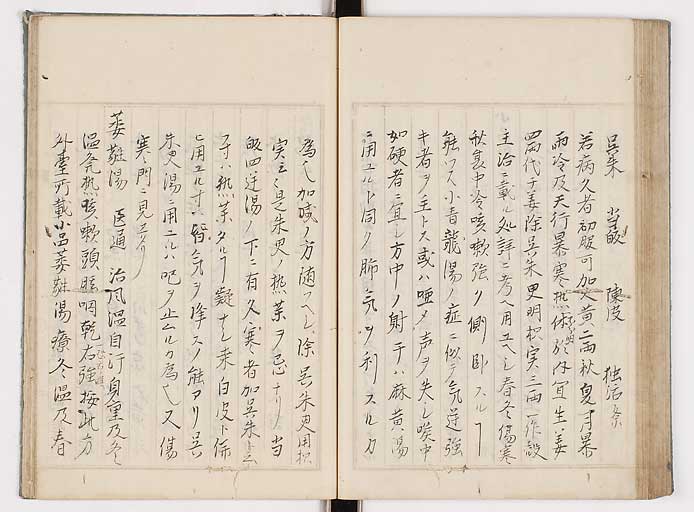 呉茱 当皈 陳皮 独活 ホ
若病久者初服可加大黄二両秋夏月暴
雨冷及天行暴寒熱伏於内宜生姜
四両代干姜除呉朱叟明枳実三両一作穀
主治ニ載ル処詳ニ考ヘ用ユヘシ春冬傷寒
秋夏中冷咳嗽強ク側臥スルヿ
能ハス小青龍湯ノ症ニ似テ気逆強
キ者ヲ主トス或ハ唖メ声ヲ失シ喉中
如硬者ニ宜シ方中ノ射干ハ麻黄湯
ニ用ユルト同ク肺気ヲ利スルカ
為也加減ノ方随フヘシ除呉朱叟用枳
実ト云是朱叟ノ熱薬ヲ忌ナリノ当
皈四逆湯ノ下ニ有久寒者加呉朱ト云
干ハ熱薬タルヿ疑ナシ桑白皮ト併
ニ用ユル寸ハ気ヲ降スノ能アリ呉
朱叟湯ニ用ユルハ吧ヲ止ムルカ為也又傷
寒門ニ見エタリ
葳蕤湯 医通 治風温自汗身重及冬
温発熱咳嗽頭眩咽乾舌強按此方
外臺所載小品葳蕤湯療冬温及春